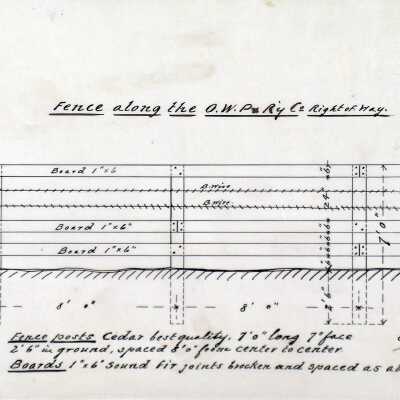 Fence along the O.W.P & Ry Co Right of Way.
Board 1"x6
B.Wire
B.Wire
Board 1"x6"
Board 1"x6"
7'0"
2'6"
8' 0"
8' 0"
Fence posts Cedar best quality. 7'0" long 7" face
2'6" in ground, spaced 8'0" from center to center
Boards 1"x6" Sound fir joints brocken and spaced as ab